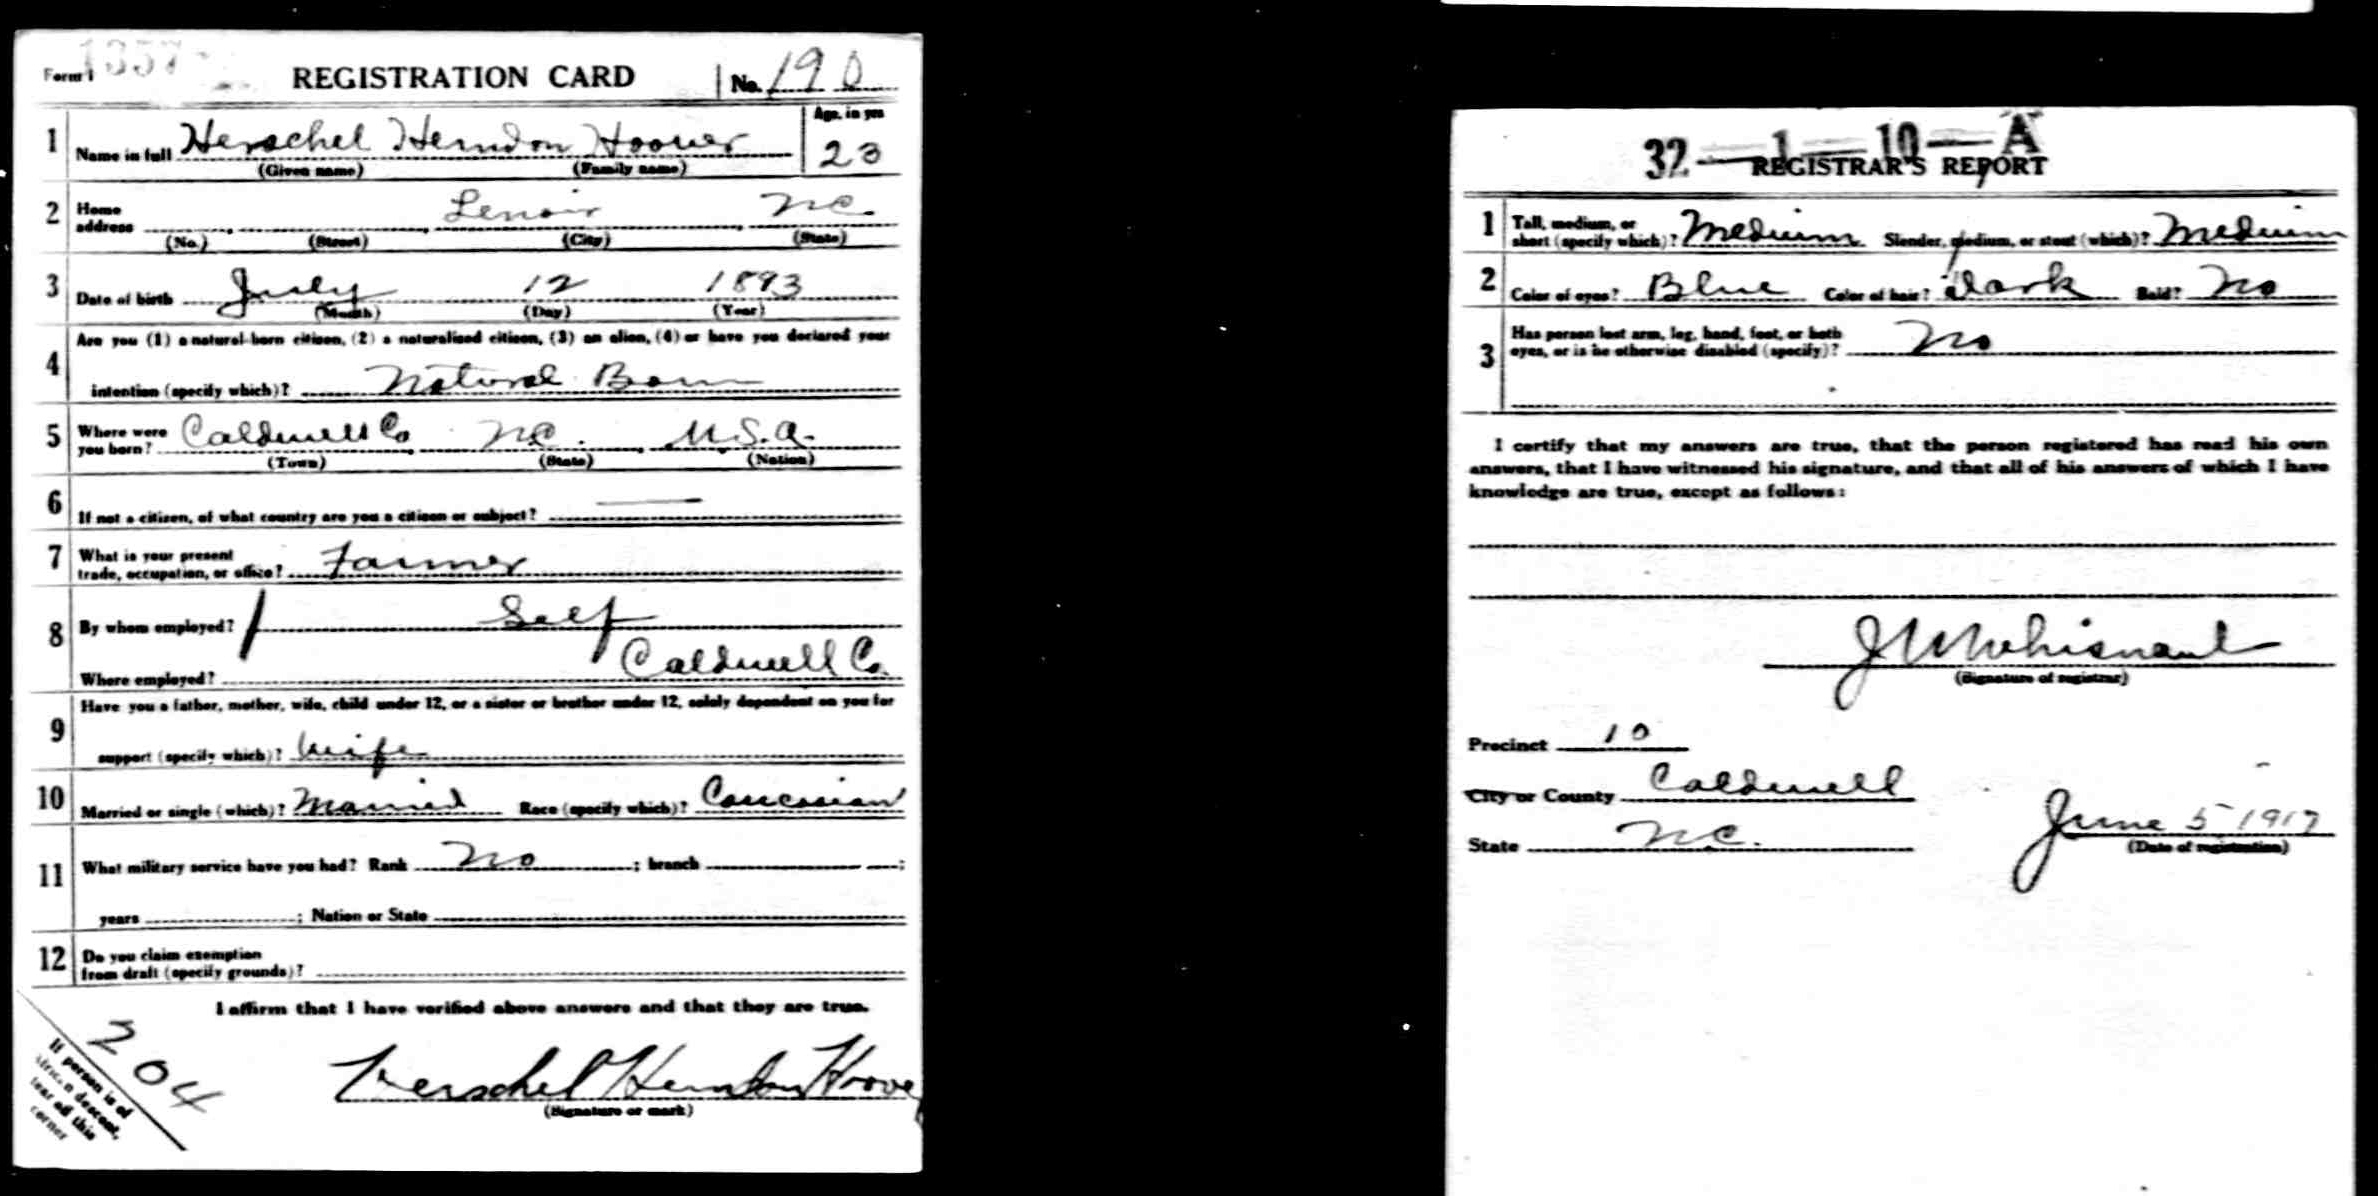 Form 1 1357
REGISTRATION CARD No. 190
1 Name in full Herschel Herndon Hoover Age, in yrs 23
(Given name) (Family name)
2 Home address Lenoir NC.
(No.) (Street) (City) (State)
3 Date of birth July 12 1893
(Month) (Day) (Year)
4 Are you (1) a natural-born citizen, (2) a naturalized citizen, (3) an alien, (4) or have you declared your
intention (specify which)? Natural Born
5 Where were you born? Caldwell Co NC. U.S.A.
(Town) (State) (Nation)
6 If not a citizen, of what country are you a citizen or subject? —
7 What is your present trade, occupation, or office? Farmer
8 By whom employed? Self
Where employed? Caldwell Co.
9 Have you a father, mother, wife, child under 12, or a sister or brother under 12, solely dependent on you for
support (specify which)? Wife
10 Married or single (which)? Married Race (specify which)? Caucasian
11 What military service have you had? Rank No ; branch ;
years ; Nation or State
12 Do you claim exemption
from draft (specify grounds)?
I affirm that I have verified above answers and that they are true.
Herschel Herndon Hoover
(Signature or mark)
204
If person is of
African descent,
tear off this
corner
32—1—10—A
REGISTRAR'S REPORT
1 Tall, medium, or short (specify which)? Medium Slender, medium, or stout (which)? Medium
2 Color of eyes? Blue Color of hair? Dark Bald? No
3 Has person lost arm, leg, hand, foot, or both
eyes, or is he otherwise disabled (specify)? No
I certify that my answers are true, that the person registered has read his own
answers, that I have witnessed his signature, and that all of his answers of which I have
knowledge are true, except as follows:
J M Whisnant
(Signature of registrar)
Precinct 10
City or County Caldwell
State N.C.
June 5 1917
(Date of registration)